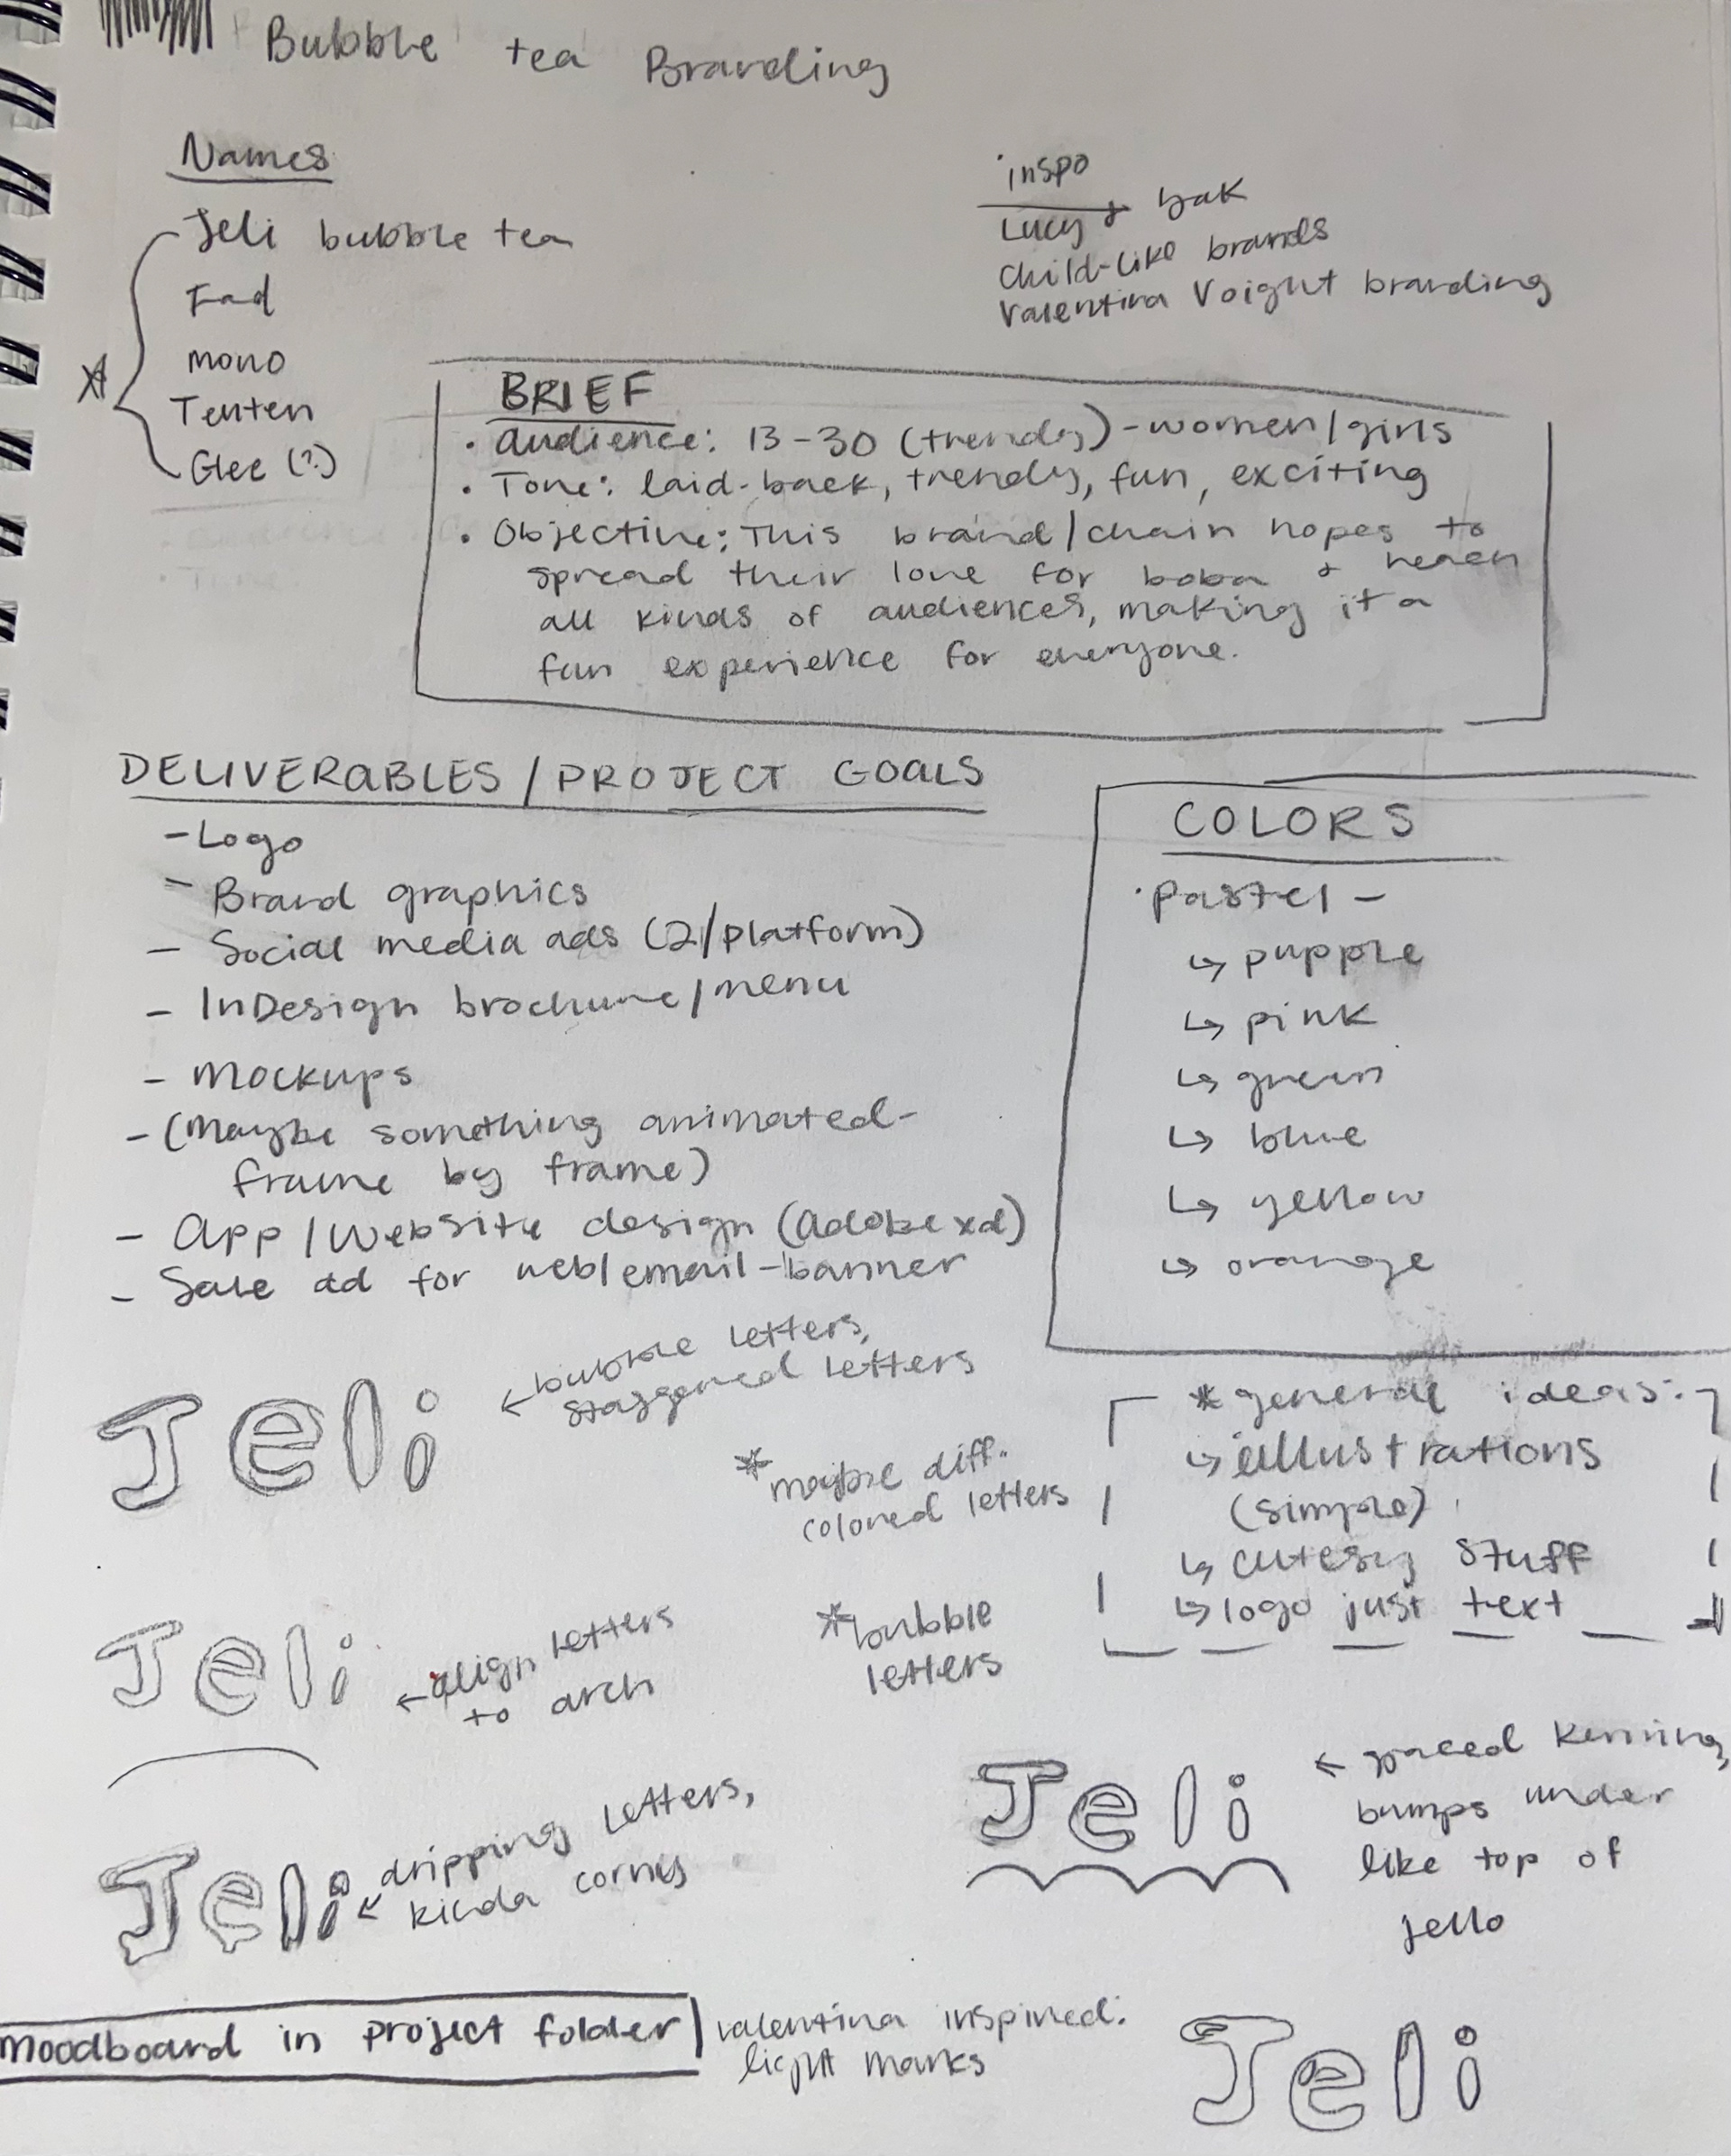 Bubble tea Branding
Names
Jeli bubble tea
Fad
mono
Tenten
Glee (?)
inspo
Lucy & yak
Child-like brands
Valentina Voight branding
BRIEF
• audience: 13-30 (trendy) - women/girls
• Tone: laid-back, trendy, fun, exciting
• Objective: This brand/chain hopes to
spread their love for boba & reach
all kinds of audiences, making it a
fun experience for everyone.
DELIVERABLES / PROJECT GOALS
- Logo
- Brand graphics
- Social media ads (2/platform)
- InDesign brochure/menu
- Mockups
- (Maybe something animated-
frame by frame)
- App/Website design (Adobe xd)
- Sale ad for web/email-banner
COLORS
• Pastel -
↳ pupple
↳ pink
↳ green
↳ blue
↳ yellow
↳ orange
Jeli
← bubble letters,
staggered letters
* maybe diff.
colored letters
* general ideas:
↳ illustrations
(simple)
↳ cutesy stuff
↳ logo just text
Jeli
← align letters
to arch
* bubble
letters
Jeli
← spaced kerning,
bumps under
like top of
jello
Jeli
← dripping letters,
kinda corny
Moodboard in project folder
valentina inspired:
light marks
Jeli